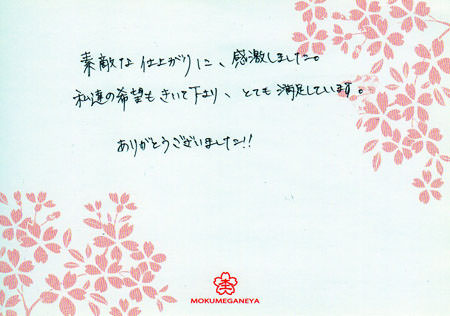 素敵な仕上がりに、感激しました。
私達の希望もきいて下さり、とても満足しています。
ありがとうございました!!
MOKUMEGANEYA